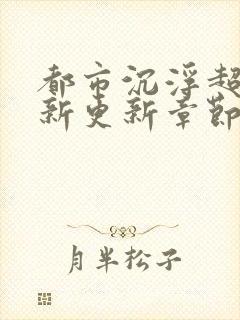 都市沉浮超
新更新章節
月半松子